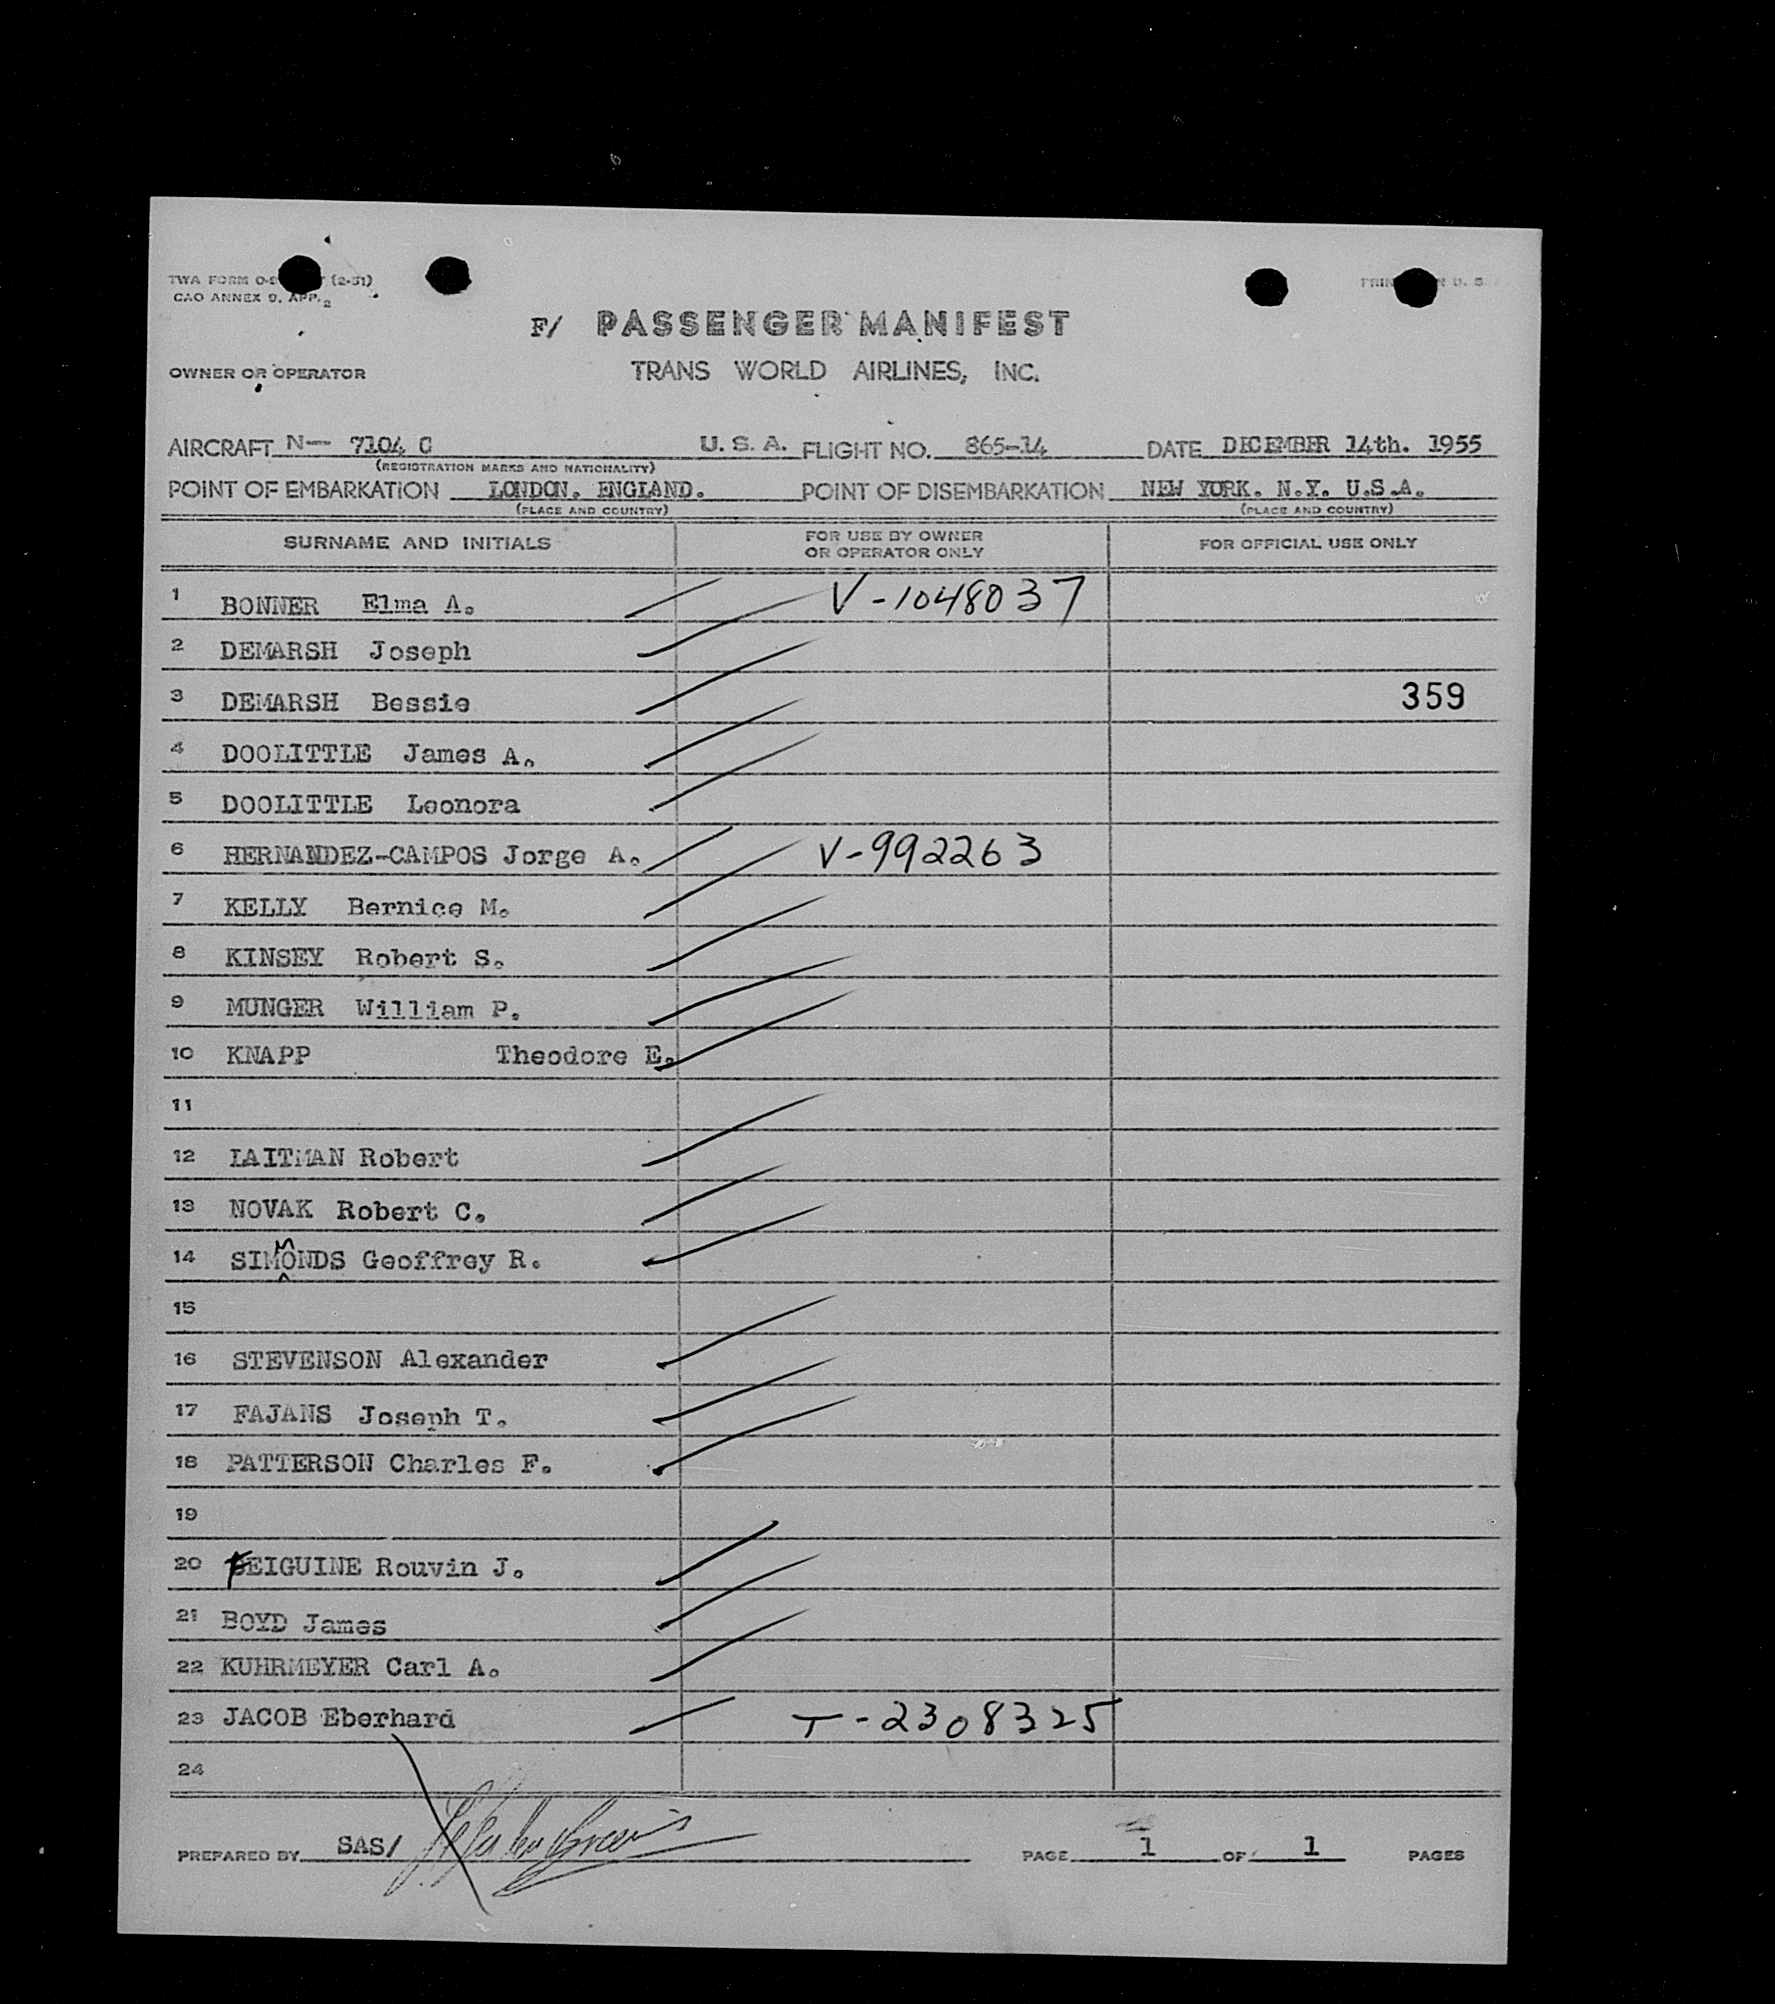 TWA FORM O-9 T (2-51)
CAO ANNEX 9, APP. 2
PRIN U. S.
F/ PASSENGER MANIFEST
OWNER OR OPERATOR TRANS WORLD AIRLINES, INC.
AIRCRAFT N— 7104 C U. S. A. FLIGHT NO. 865-14 DATE DECEMBER 14th. 1955
(REGISTRATION MARKS AND NATIONALITY)
POINT OF EMBARKATION LONDON. ENGLAND. POINT OF DISEMBARKATION NEW YORK. N.Y. U.S.A.
(PLACE AND COUNTRY) (PLACE AND COUNTRY)
SURNAME AND INITIALS FOR USE BY OWNER OR OPERATOR ONLY FOR OFFICIAL USE ONLY
1 BONNER Elma A. V-1048037
2 DEMARSH Joseph
3 DEMARSH Bessie 359
4 DOOLITTLE James A.
5 DOOLITTLE Leonora
6 HERNANDEZ-CAMPOS Jorge A. V-992263
7 KELLY Bernice M.
8 KINSEY Robert S.
9 MUNGER William P.
10 KNAPP Theodore E.
11
12 LAITMAN Robert
13 NOVAK Robert C.
14 SIMMONDS Geoffrey R.
15
16 STEVENSON Alexander
17 FAJANS Joseph T.
18 PATTERSON Charles F.
19
20 FEIGUINE Rouvin J.
21 BOYD James
22 KUHRMEYER Carl A.
23 JACOB Eberhard T-2308325
24
PREPARED BY SAS/ PAGE 1 OF 1 PAGES